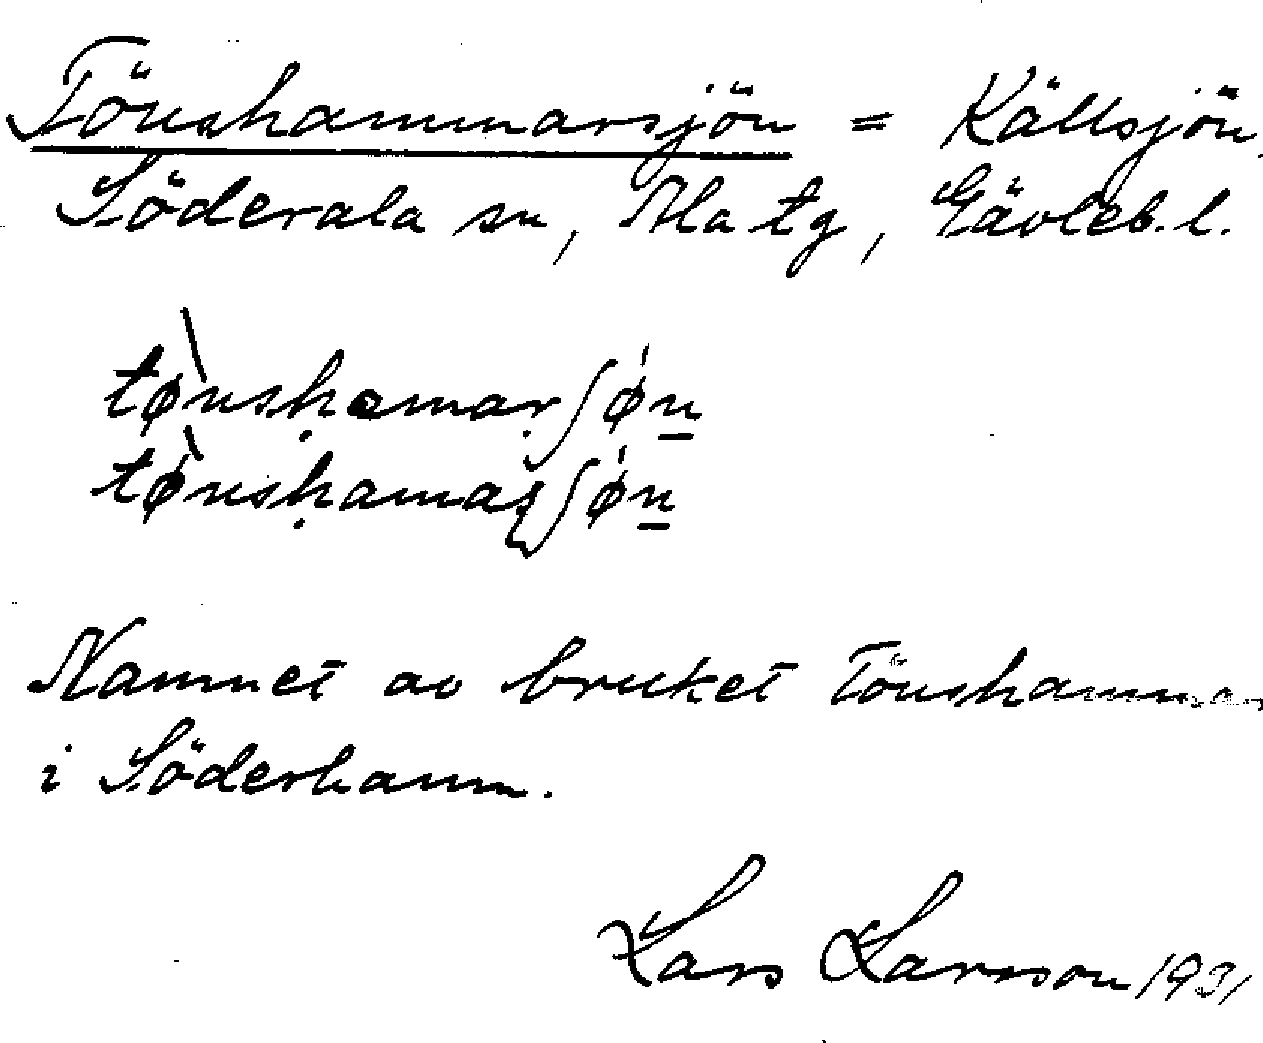 Tönshammarsjön = Källsjön.
Söderala sn, Ala tg, Gävleb. l.
tø̀nsḥamaṛʃǿn̲
tø̀nsḥamaʂʃǿn̲
Namnet av bruket Tönshammar
i Söderhamn.
Lars Larsson 1931